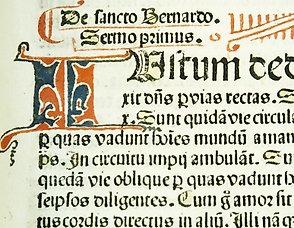 De sancto Bernardo.
Sermo primus.
IUstum ded
xit dn̄s ꝑ vias rectas. S
x. Sunt quidā vie circula
ꝑ quas vadunt hoīes mundū aman
ps. In circuitu impij ambulāt. Su
quedā vie oblique ꝑ quas vadunt h
seipsos diligentes. Cum ḡ amor sit
tus cordis directus in aliū. Illi nā q